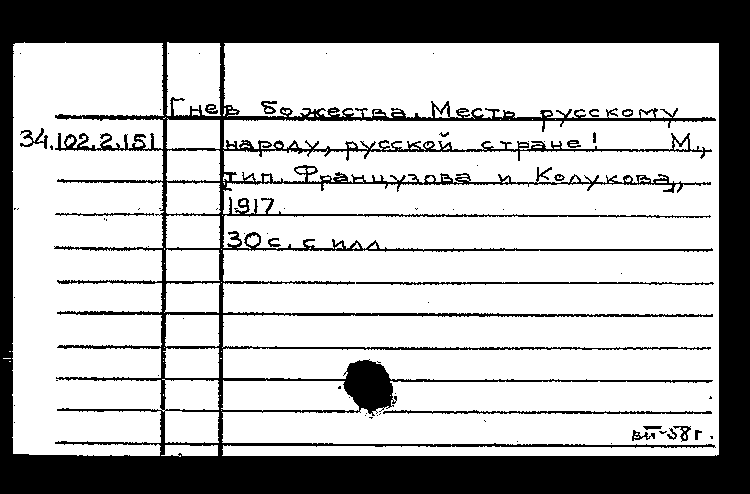 Гнев божества. Месть русскому
34.102.2.151 народу, русской стране! М.,
тип. Французова и Колукова,
1917.
30 с. с илл.
вп-58 г.